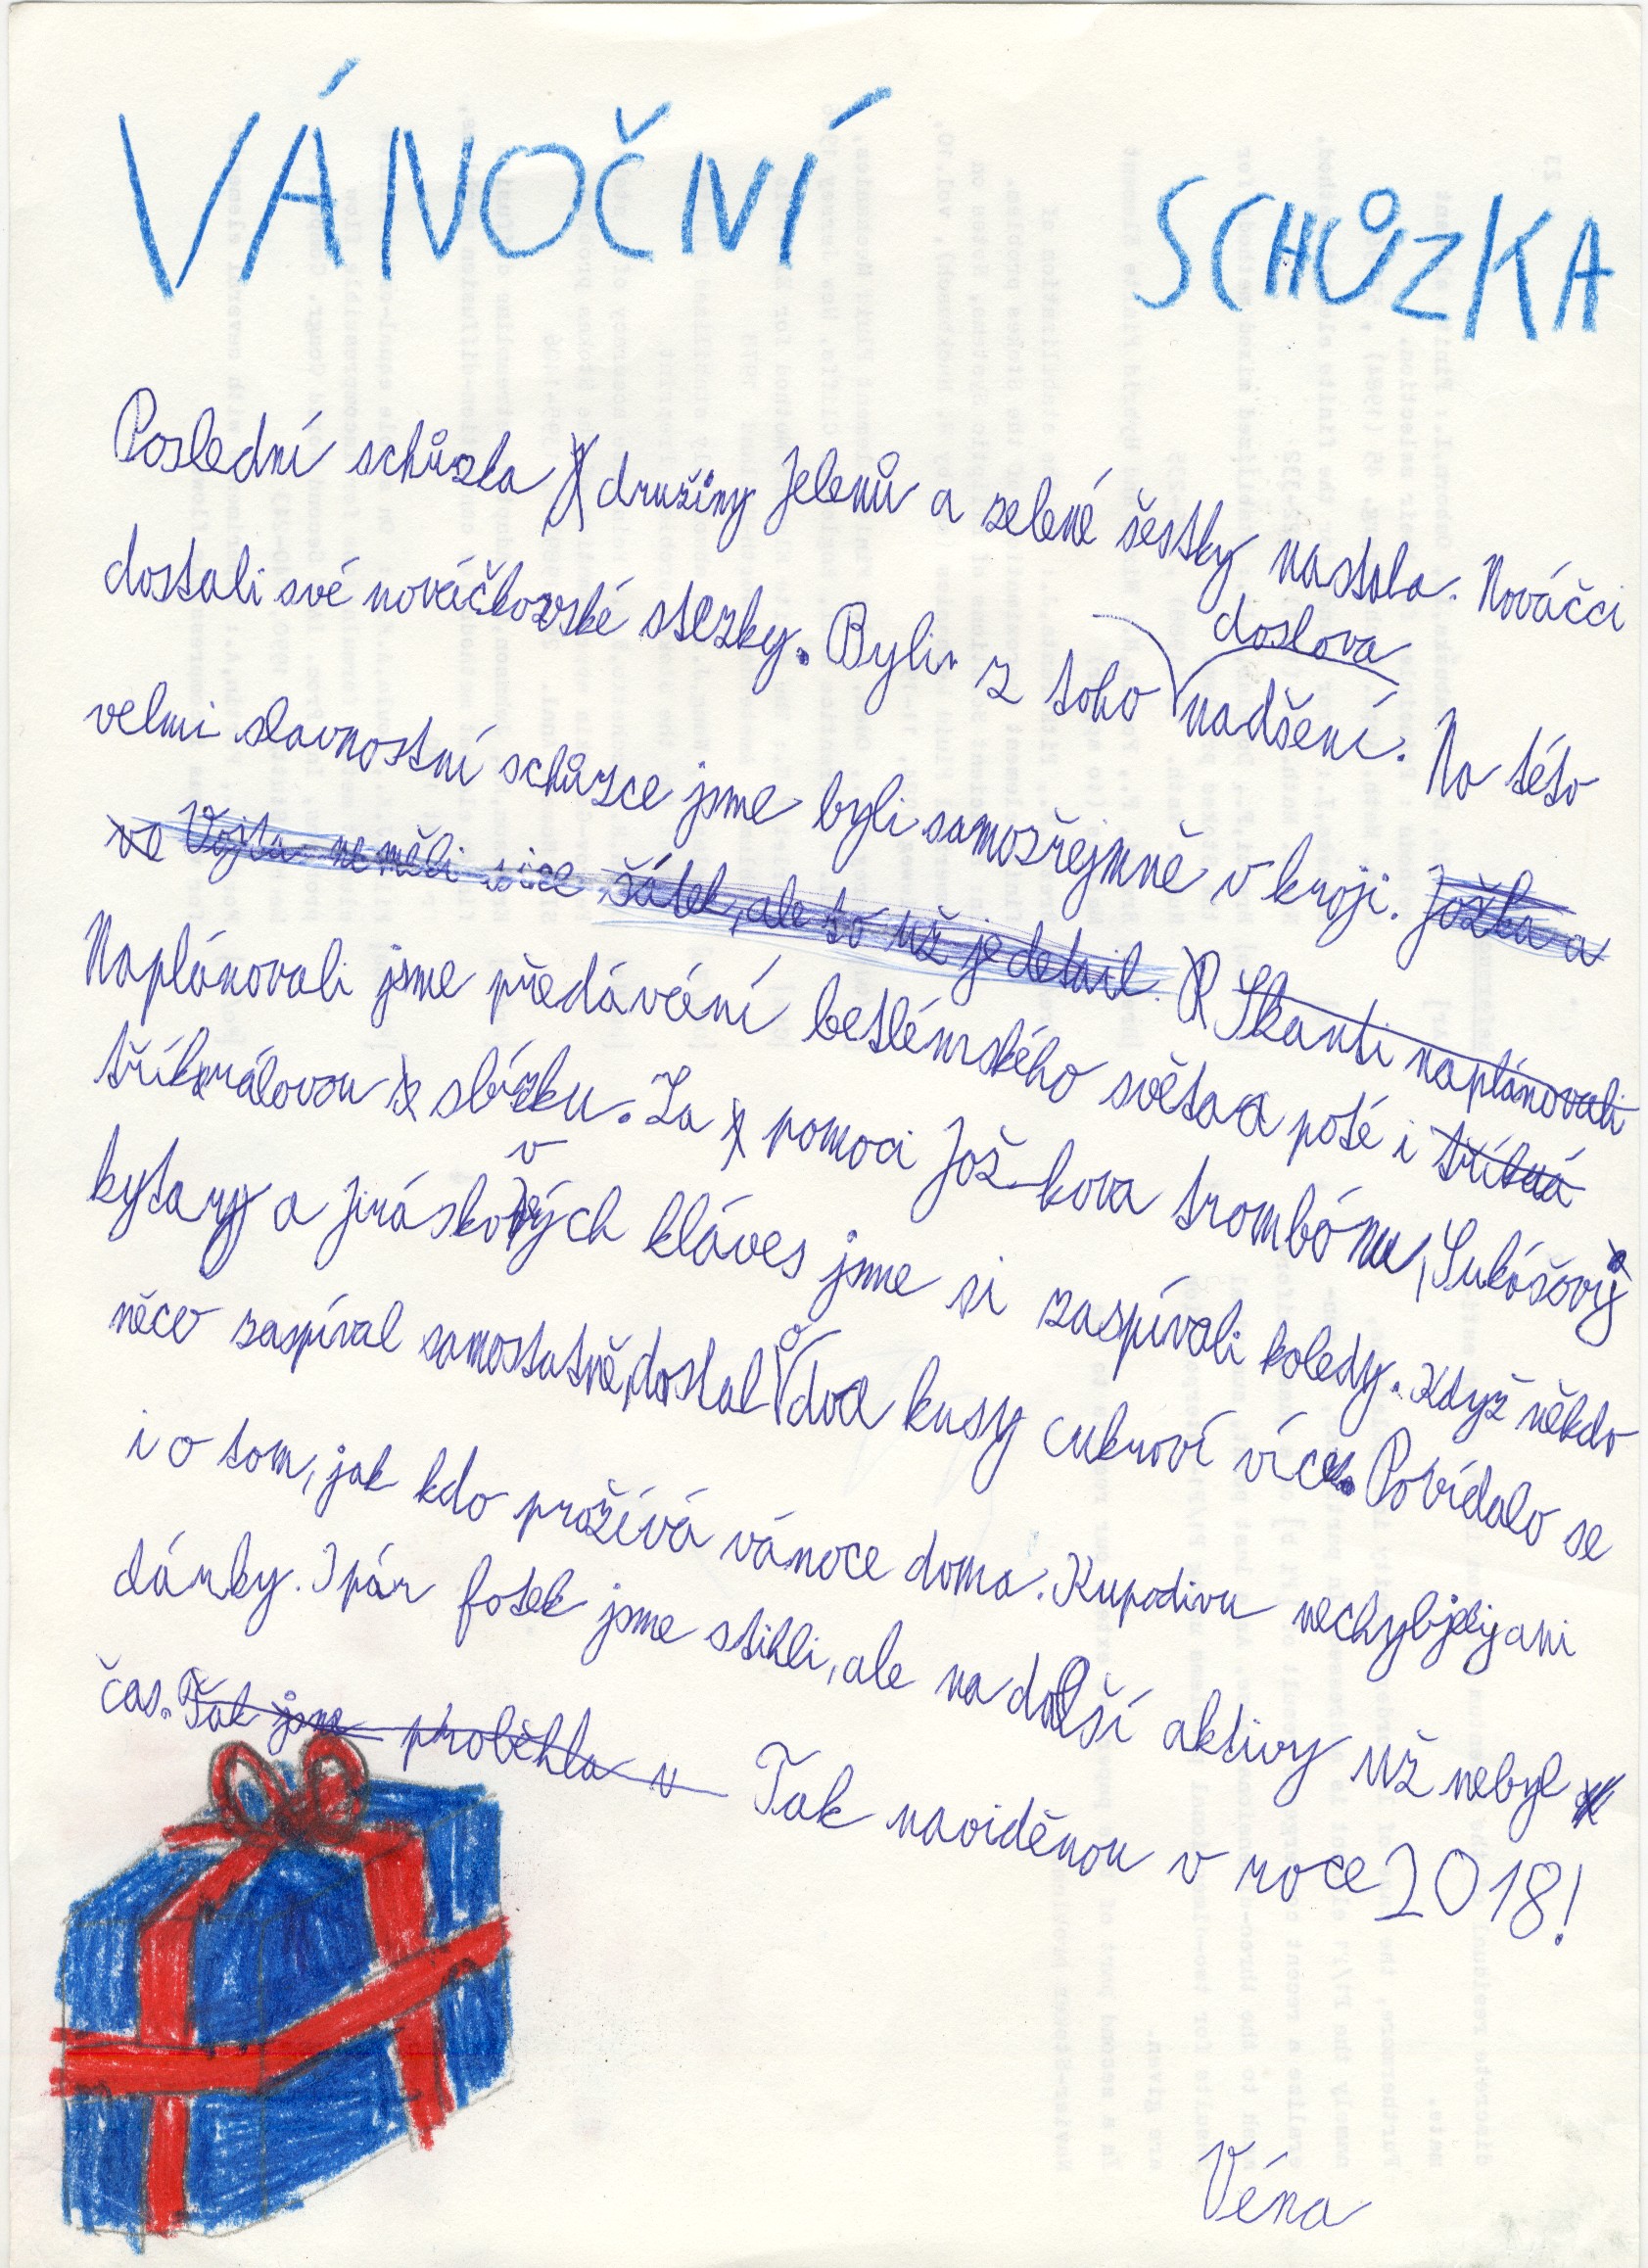 VÁNOČNÍ SCHŮZKA
Poslední schůzka družiny Jelenů a zelené šestky nastala. Nováčci
dostali své nováčkovské stezky. Byli z toho doslova nadšení. Na této
velmi slavnostní schůzce jsme byli samozřejmně v kroji. Joška a
Vojta neměli sice šátek, ale to už je detail. Skauti naplánovali
Naplánovali jsme předávání betlémského světa a poté i tříkrá
tříkrálovou sbírku. Za pomoci Joškova trombónu, Lukášovy
kytary a Jiráskových kláves jsme si zaspívali koledy. Když někdo
něco zaspíval samostatně, dostal o dva kusy cukroví více. Povídalo se
i o tom, jak kdo prožívá vánoce doma. Kupodivu nechyběly ani
dárky. I pár fotek jsme stihli, ale na další aktivy už nebyl
čas. Tak jsme proběhla v Tak naviděnou v roce 2018!
Véna